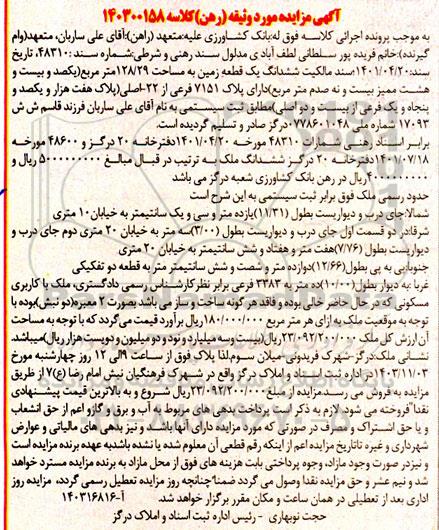 آگهی مزایده مورد وثیقه (رهن) کلاسه ۱۴۰۳۰۰۱۵۸
به موجب پرونده اجرائی کلاسه فوق له:بانک کشاورزی علیه:متعهد (راهن):آقای علی ساریان، متعهد(وام
گیرنده):خانم فریده پور سلطانی لطف آبادی مدلول سند رهنی و شرطی:شماره سند :۴۸۳۱۰، تاریخ
سند:۱۴۰۱/۰۴/۲۰سند مالکیت ششدانگ یک قطعه زمین به مساحت ۱۲۸/۲۹متر مربع(یکصد و بیست و
هشت ممیز بیست و نه صدم متر مربع)دارای پلاک ۷۱۵۱ فرعی از ۲۲-اصلی(پلاک هفت هزار و یکصد و
پنجاه و یک فرعی از بیست و دو اصلی)مطابق ثبت سیستمی به نام آقای علی ساریان فرزند قاسم ش ش
۱۷۰۹۳ شماره ملی ۰۷۷۸۶۰۱۰۴۸ درگز صادر و تسلیم گردیده است.
برابر اسناد رهنی شمارات ۴۸۳۱۰ مورخه ۱۴۰۱/۰۴/۲۰ دفترخانه ۲۰ درگز و ۴۸۶۰۰ مورخه
۱۴۰۱/۰۷/۱۸ دفترخانه ۲۰ درگز ششدانگ ملک به ترتیب در قبال مبالغ ۵۰۰۰۰۰۰۰۰۰ ریال و
۴۰۰۰۰۰۰۰۰۰ ریال در رهن بانک کشاورزی شعبه درگز می باشد
حدود رسمی ملک فوق برابر ثبت سیسمی به این شرح است
شمالا:جای درب و دیواریست بطول (۱۱/۳۱)یازده متر و سی و یک سانتیمتر به خیابان ۱۰ متری
شرقا:در دو قسمت اول جای درب و دیواریست بطول (۳/۰۰)سه متر به خیابان ۲۰ متری دوم جای درب و
دیواریست بطول (۷/۷۶)هفت متر و هفتاد و شش سانتیمتر به خیابان ۲۰ متری
جنوبا:پی به پی بطول(۱۲/۶۶)دوازده متر و شصت و شش سانتیمتر متر به قطعه دو تفکیکی
غربا :به دیوار بطول(۱۰/۰۰)ده متر به ۳۳۸۳ فرعی برابر نظر کارشناس رسمی دادگستری، ملک با کاربری
مسکونی که در حال حاضر خالی بوده و فاقد هر گونه ساخت و ساز می باشد بصورت ۲ معبره(دو نبش)بوده با
توجه به موقعیت ملک به ازای هر متر مربع ۱۸۰/۰۰۰/۰۰۰ریال برآورد قیمت می گردد که با توجه به مساحت
آن ارزش کل ملک ۲۳/۰۹۲/۲۰۰/۰۰۰ریال(بیست وسه میلیارد و نود و دو میلیون و دویست هزار ریال)میباشد.
نشانی ملک:درگز-شهرک فریدونی-میلان سوم.لذا پلاک فوق از ساعت ۹الی ۱۲ روز چهارشنبه مورخ
۱۴۰۳/۱۱/۰۳در اداره ثبت اسناد و املاک درگز واقع در شهرک فرهنگیان نبش امام رضا (ع)۷ از طریق
مزایده به فروش می رسد.مزایده از مبلغ ۲۳/۰۹۲/۲۰۰/۰۰۰ریال شروع و به بالاترین قیمت پیشنهادی
نقدا" فروخته می شود. لازم به ذکر است پرداخت بدهی های مربوطه به آب و برق و گاز و اعم از حق انشعاب
و یا حق اشتراک و مصرف در صورتی که مورد مزایده دارای آنها باشد و نیز بدهی های مالیاتی و عوارض
شهرداری و غیره تا تاریخ مزایده اعم از اینکه رقم قطعی آن معلوم شده یا نشده باشد به عهده برنده مزایده است
و نیز در صورت وجود مازاد، وجوه پرداختی بابت هزینه های فوق از محل مازاد به برنده مزایده مسترد خواهد
شد و نیم عشر و حق مزایده نقدا وصول می گردد ضمنا"چنانچه روز مزایده تعطیل رسمی گردد، مزایده روز
اداری بعد از تعطیلی در همان ساعت و مکان مقرر برگزار خواهد شد. آ-۱۴۰۳۱۶۸۱۶
حجت نوبهاری - رئیس اداره ثبت اسناد و املاک درگز